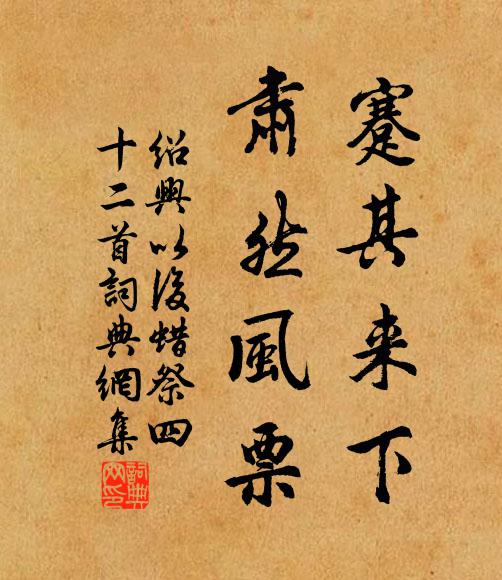 蹇其来下
肃然風票
绍興以後蜡祭四
十二首詞典網集
詞典网印